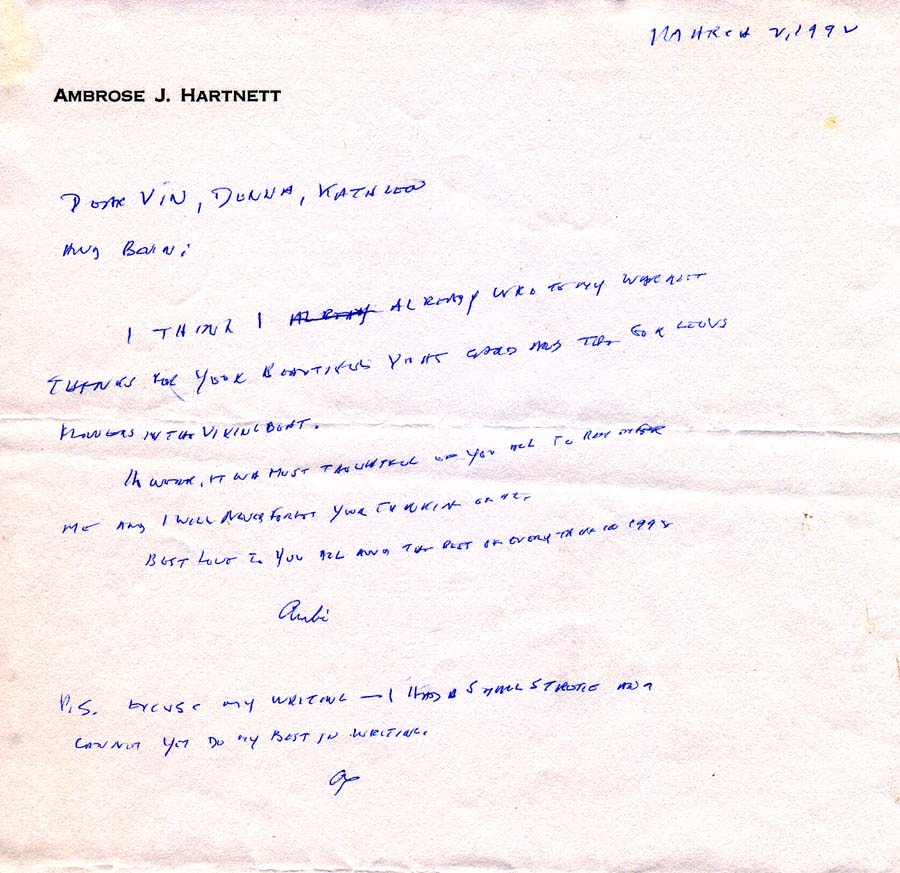 MAHRCH 2, 1992
AMBROSE J. HARTNETT
DEAR VIN, DONNA, KATHLEEN
AND BRIAN;
I THINK I ALREADY ALREADY TO MY WARMEST
THANKS FOR YOUR BEAUTIFUL CARD AND THE
FLOWERS IN THE VIKING BOAT.
IT WA MOST THOUGHTFUL OF YOU ALL TO REMEMBER
ME AND I WILL NEVER FORGET YOUR THINKIN OF ME.
BEST LOVE TO YOU ALL AND THE BEST OF EVERYTHING IN 1992
Ambi
P.S. EXCUSE MY WRITING — I HAD A SMALL STROKE AND
CANNOT YET DO MY BEST IN WRITING.